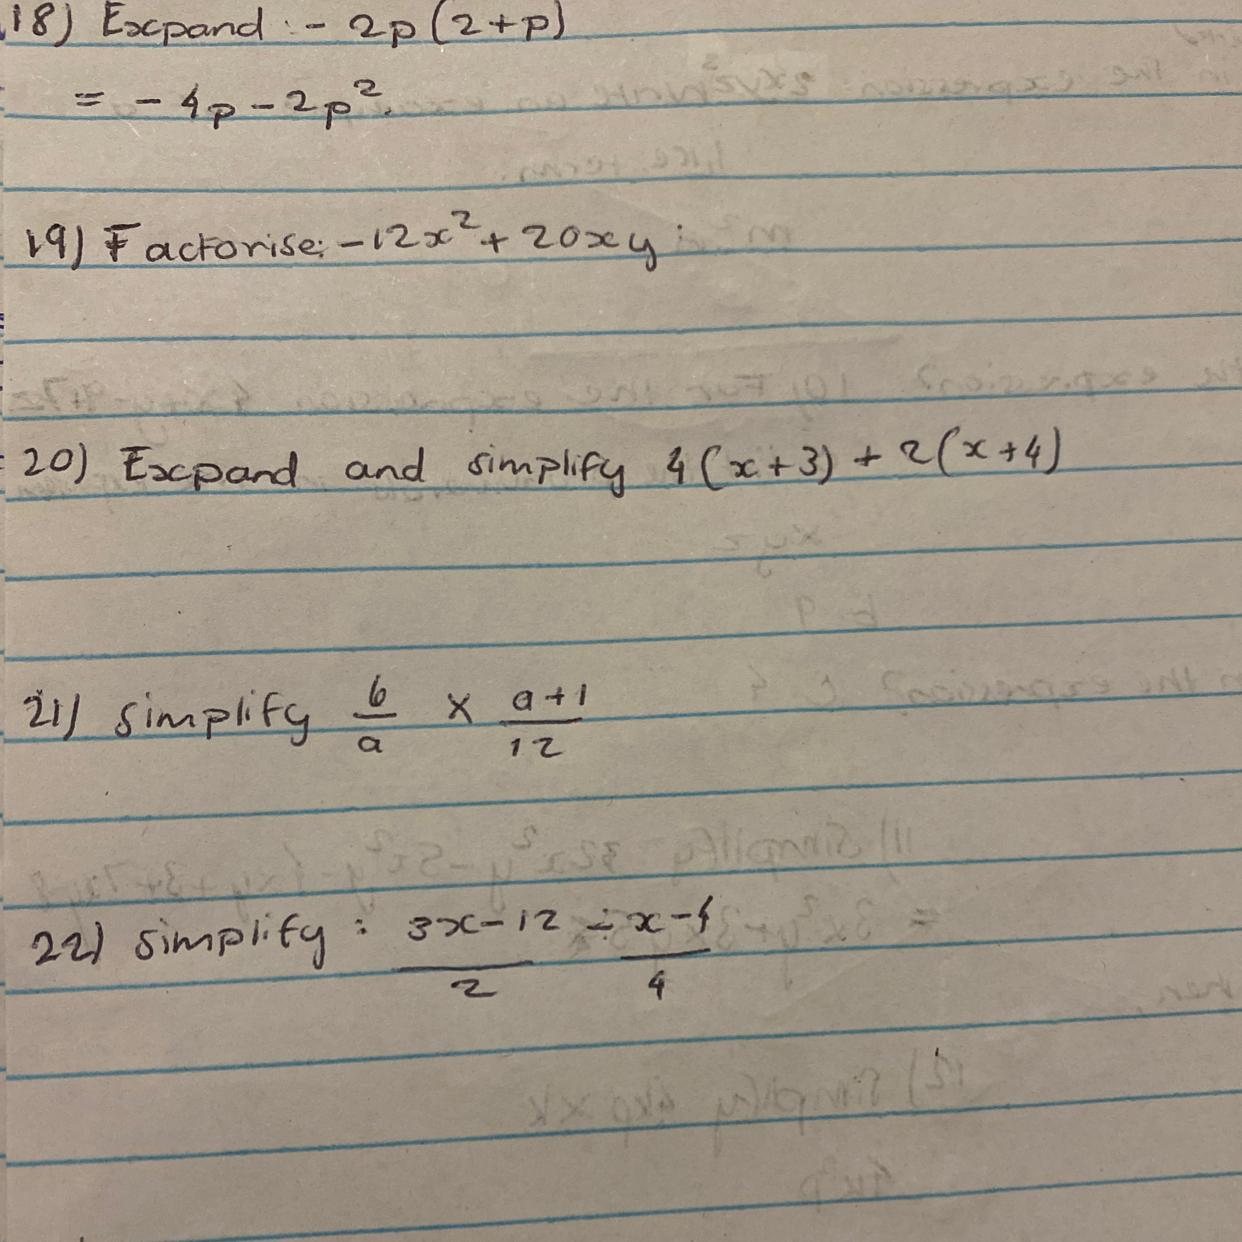 18) Expand :- 2p(2+p)
= - 4p - 2p².
19) Factorise: -12x² + 20xy
20) Expand and simplify 4(x+3) + 2(x+4)
21) simplify 6/a × a+1/12
22) simplify : 3x-12/2 ÷ x-4/4